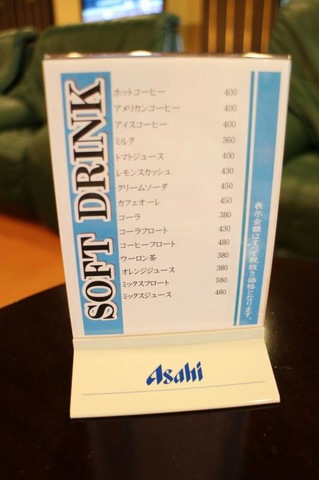 SOFT DRINK
ホットコーヒー 400
アメリカンコーヒー 400
アイスコーヒー 400
ミルク 360
トマトジュース 400
レモンスカッシュ 430
クリームソーダ 450
カフェオーレ 450
コーラ 380
コーラフロート 430
コーヒーフロート 480
ウーロン茶 380
オレンジジュース 380
ミックスフロート 580
ミックスジュース 480
表示金額はすべて税抜き価格となります。
Asahi